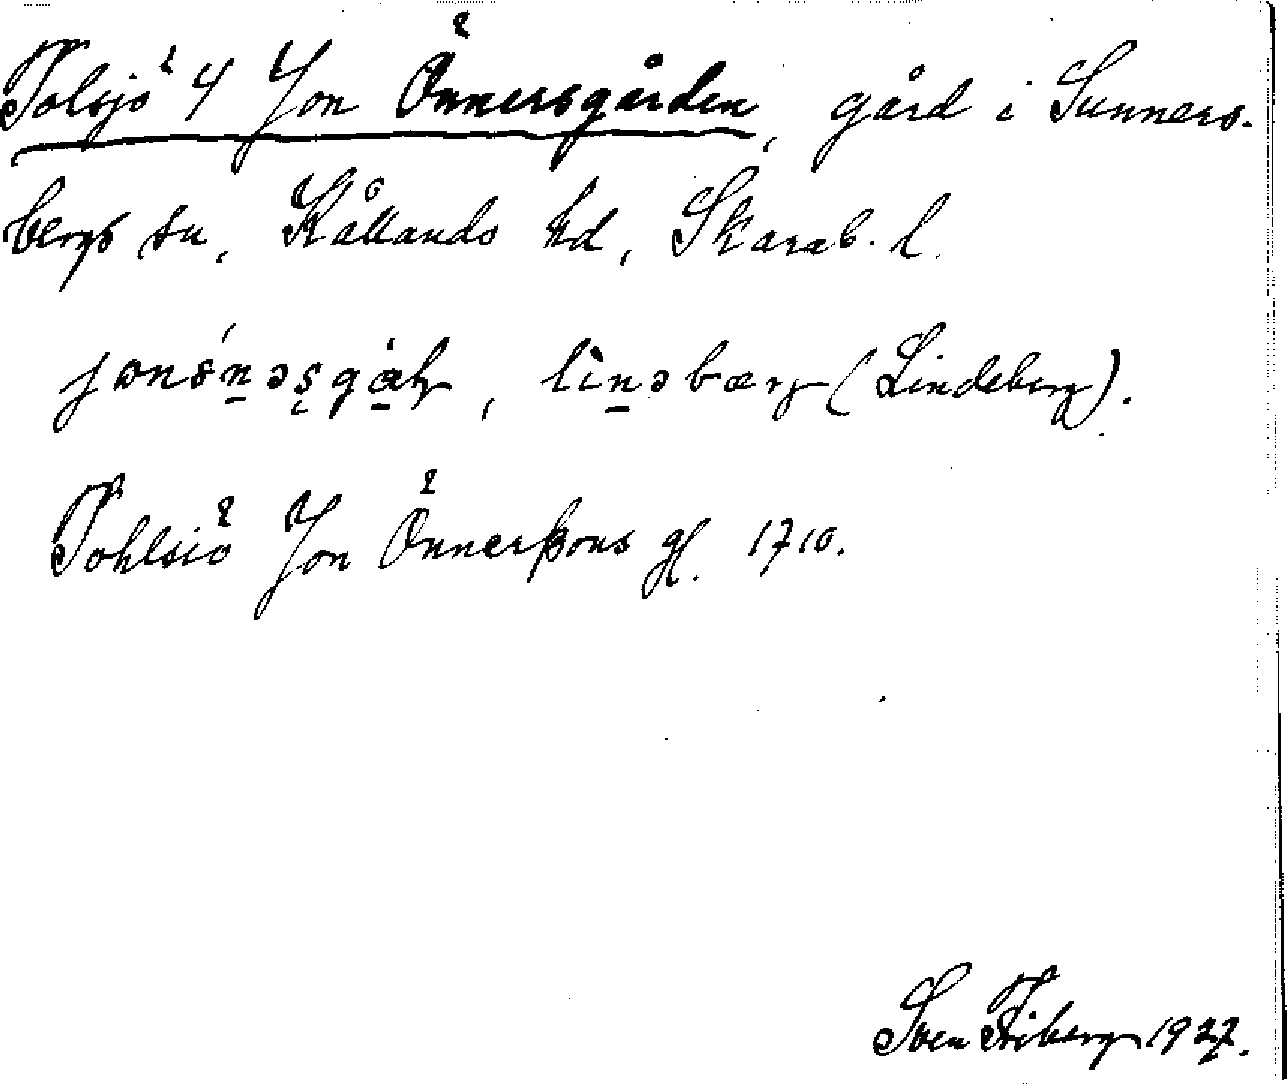 Tolsjö 4 Jon Önnersgården, gård i Sunners-
bergs sn, Kållands hd, Skarab. l.
, linəbærg (Lindeberg).
Tohlsiö Jon Önnerßons gl. 1710.
Sven Friberg 1927.